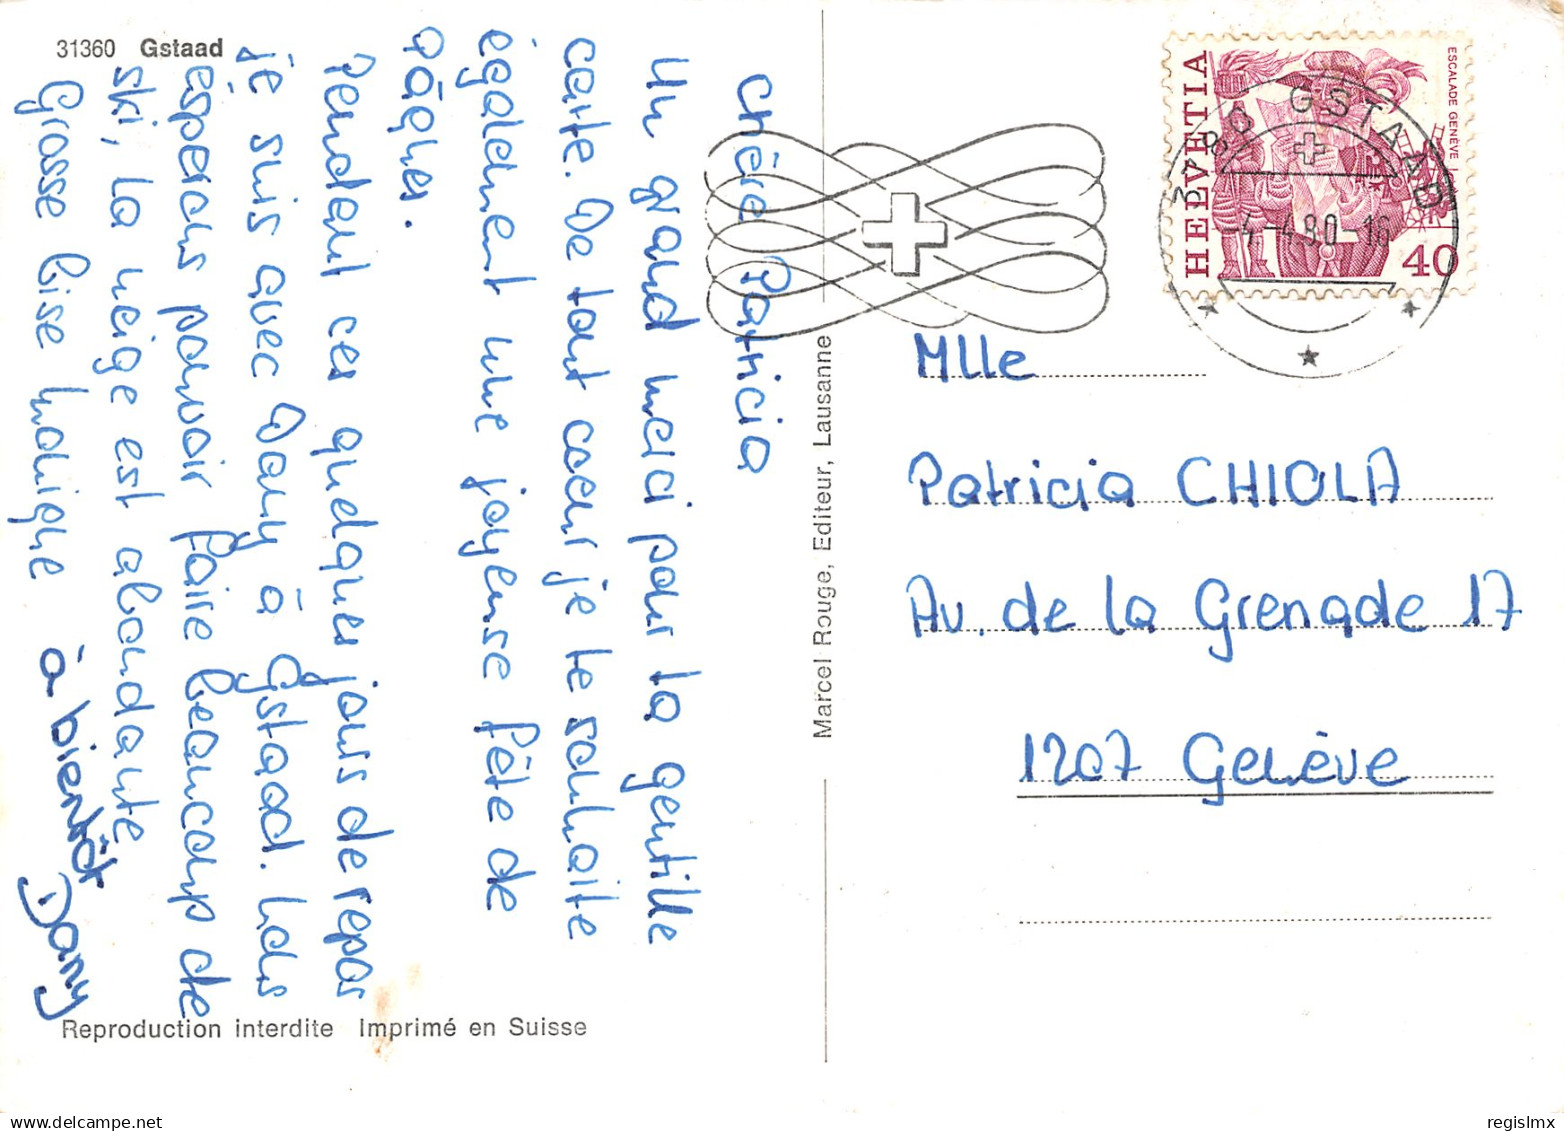 31360 Gstaad
Chère Patricia
Un grand merci pour la gentille
carte. De tout coeur je te souhaite
également une joyeuse fête de
Pâques.
Pendant ces quelques jours de repos
je suis avec Dany à Gstaad. Nous
espérons pouvoir faire beaucoup de
ski, la neige est abondante
Grosse bise Monique
à bientôt
Dany
Reproduction interdite Imprimé en Suisse
Marcel Rouge, Editeur, Lausanne
HELVETIA
ESCALADE GENÈVE
40
3780 GSTAAD
-4.-4.80-16
Mlle
Patricia CHIOLA
Av. de la Grenade 17
1207 Genève
regislmx